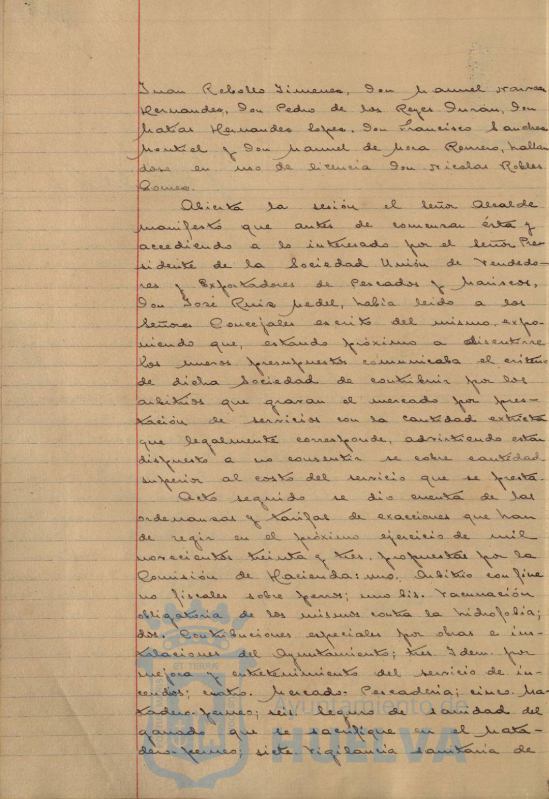 Juan Rebollo Jimenez, Don Manuel Narvaez
Hernandez, Don Pedro de los Reyes Durán, Don
Matias Hernandez Lopez, Don Francisco Sanchez
Montiel y Don Manuel de Mora Romero, hallan
dose en uso de licencia Don Nicolas Robles
Gomez.
Abierta la sesión el Señor Alcalde
manifestó que antes de comenzar ésta y
accediendo a lo interesado por el Señor Pre-
sidente de la Sociedad Unión de Vendedo-
res y Exportadores de Pescados y Mariscos,
Don José Ruiz Medel, había leido a los
Señores Concejales escrito del mismo, expo-
niendo que, estando próximo a discutirse
los nuevos presupuestos comunicaba el criterio
de dicha Sociedad de contribuir por los
arbitrios que gravan el mercado por pres-
tación de servicios con la cantidad extricta
que legalmente corresponde, advirtiendo están
dispuesto a no consentir se cobre cantidad
superior al costo del servicio que se presta.
Acto seguido se dio cuenta de las
ordenanzas y tarifas de exacciones que han
de regir en el próximo ejercicio de mil
novecientos treinta y tres, propuestas por la
Comisión de Hacienda: uno. Arbitrio con fine
no fiscales sobre perros; uno bis. Vacunación
obligatoria de los mismos contra la hidrofobia;
dos. Contribuciones especiales por obras e ins-
talaciones del Ayuntamiento; tres. Idem. por
mejora y entretenimiento del servicio de in-
cendios; cuatro. Mercado. Pescadería; cinco. Ma-
tadero; seis. Seguro de sanidad del
ganado que se sacrifique en el Mata-
dero; siete. Vigilancia sanitaria de
ET TERRÆ
Ayuntamiento de
HUELVA